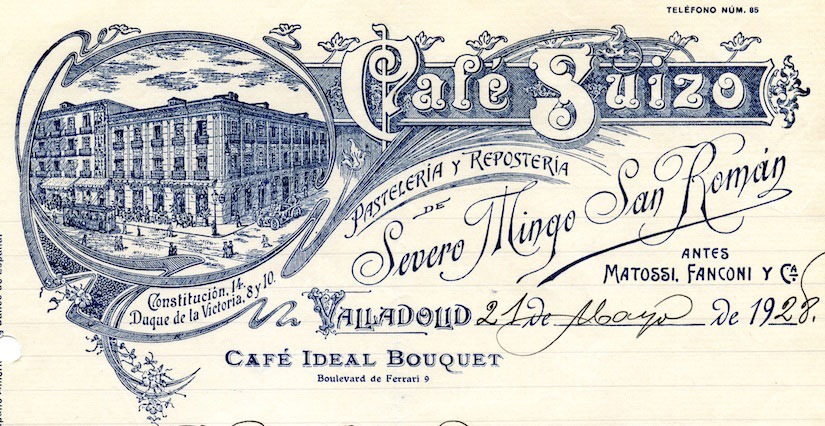 TELÉFONO NÚM. 85
Café Suizo
PASTELERÍA Y REPOSTERÍA
DE
Severo Mingo San Román
ANTES
MATOSSI, FANCONI Y CA.
Constitución, 14.
Duque de la Victoria, 8 y 10.
VALLADOLID 21 de Mayo de 1928.
CAFÉ IDEAL BOUQUET
Boulevard de Ferrari 9